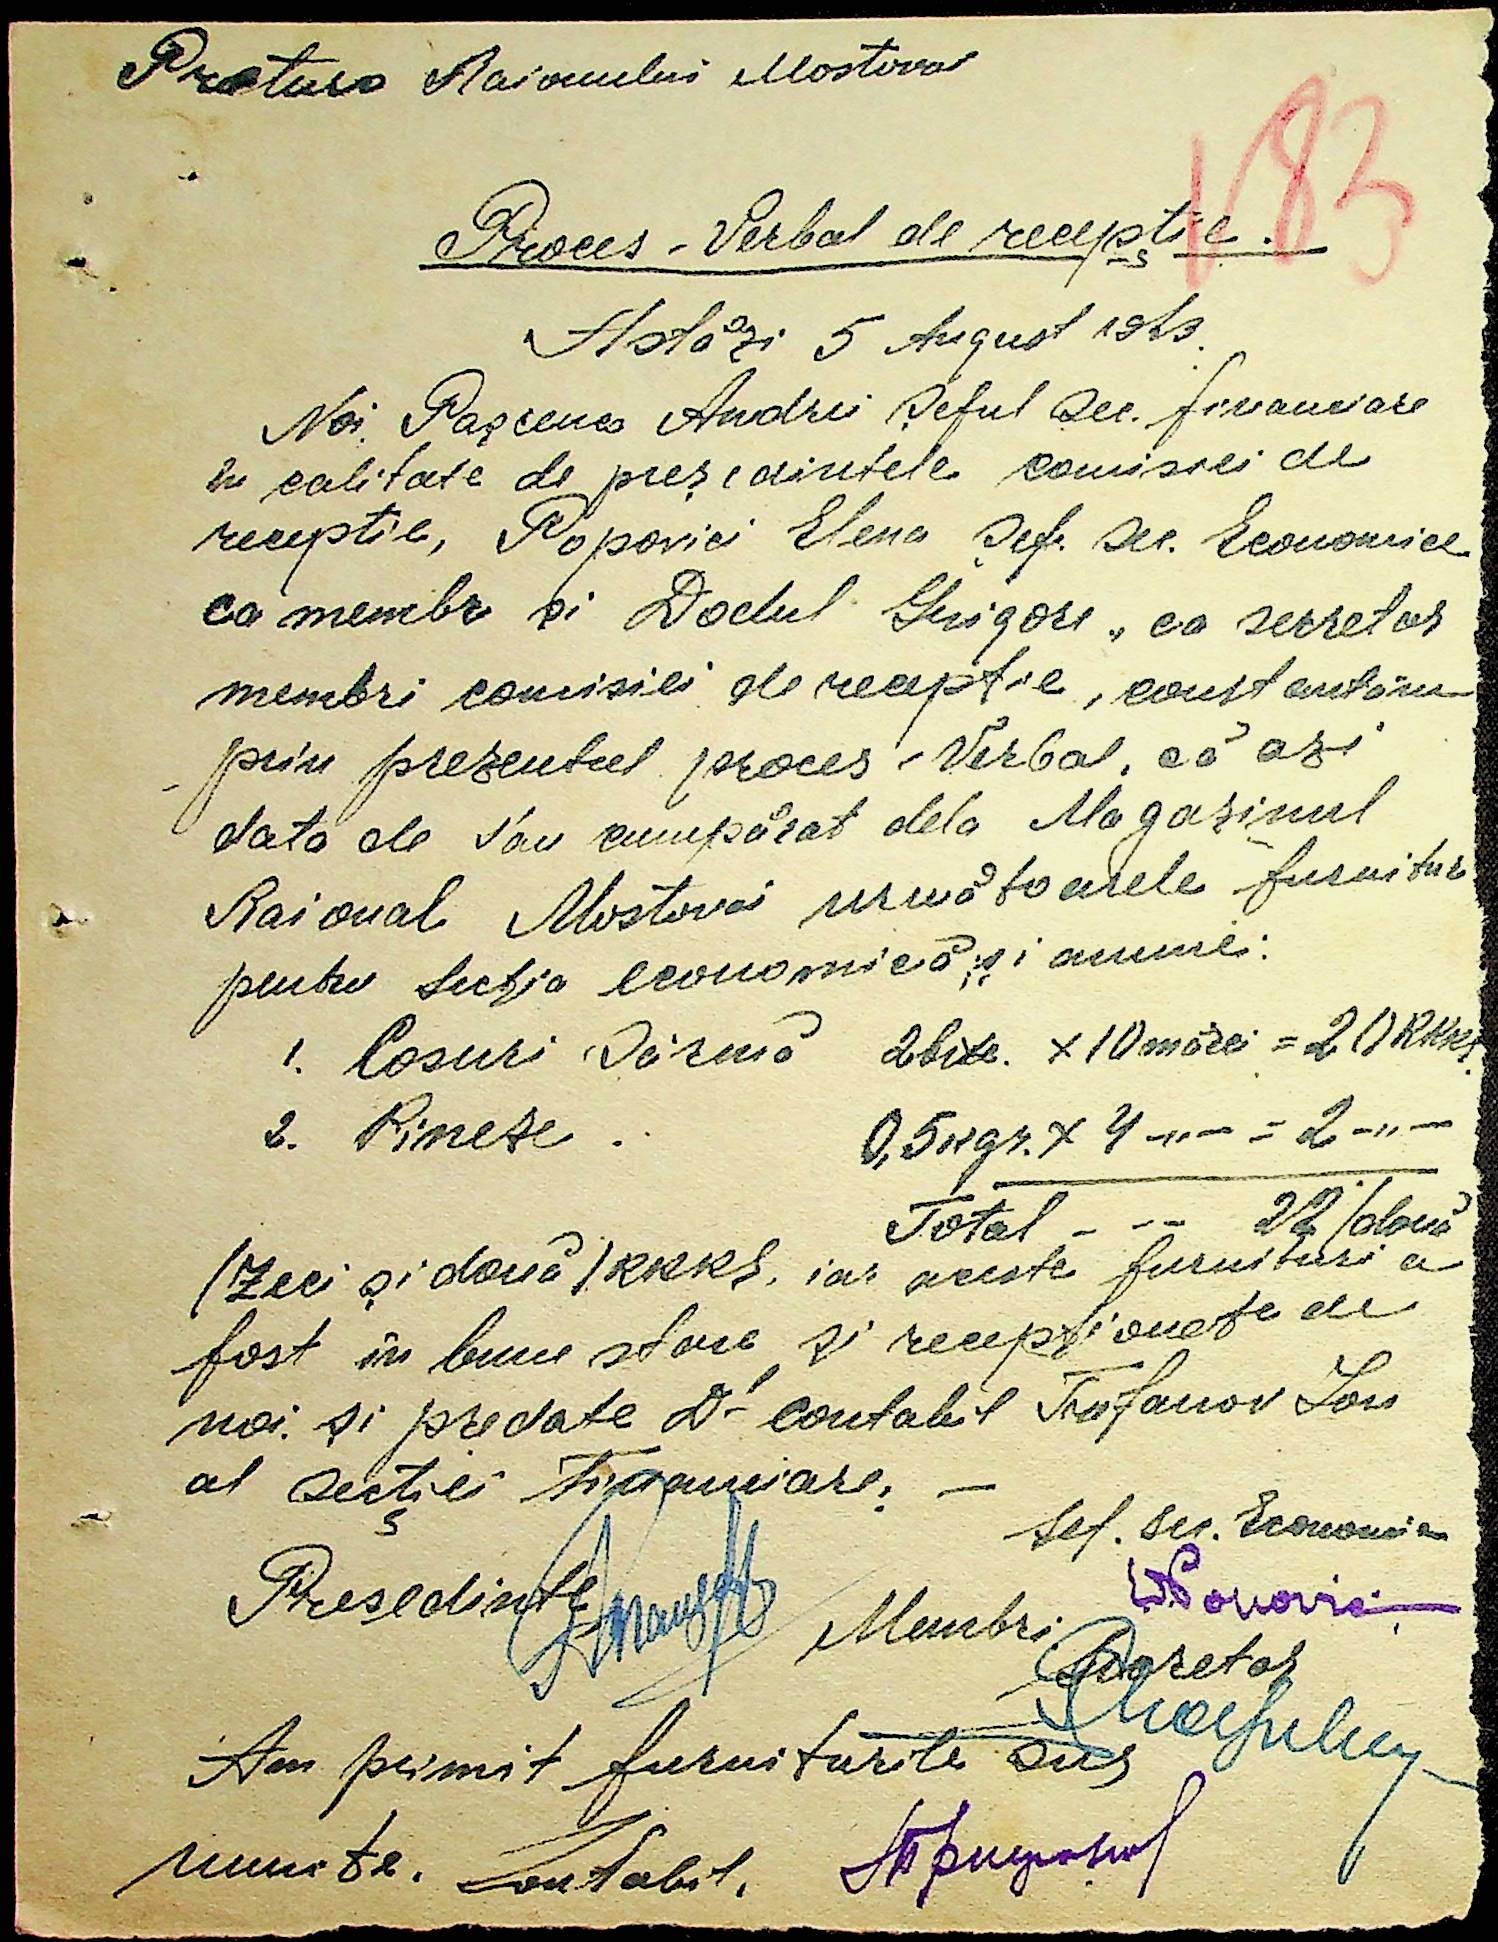 Pretura Raionului Mostovoi
183
Proces-Verbal de recepție.
Astăzi 5 August 1943.
Noi, Pașcenco Andrei șeful sec. financiare
în calitate de președintele comisiei de
recepție, Popovici Elena șef. sec. Economice
ca membr și Dodul Grigore, ca secretar
membri comisiei de recepție, constantăm
prin prezentul proces-Verbal, că azi
data de s'au cumpărat dela Magazinul
Raional Mostovoi următoarele furnituri
pentru Secția economică și anumei:
1. Cosuri Sârmă 2 buc. x 10 mărci = 20 RKKS.
2. Pineze . 0,5 kgr. x 4 -„- = 2 -„-
Total - -- 22 /două
/zeci și două/ RKKS. iar aceste furnituri a
fost în bune stare și recepționate de
noi și predate D-l contabil Trifanov Ion
al secției Financiare. —
Șef. sec. Economice
Președinte
Popovici
Membri
Secretar
Am primit furniturile sus
numite. Contabil.